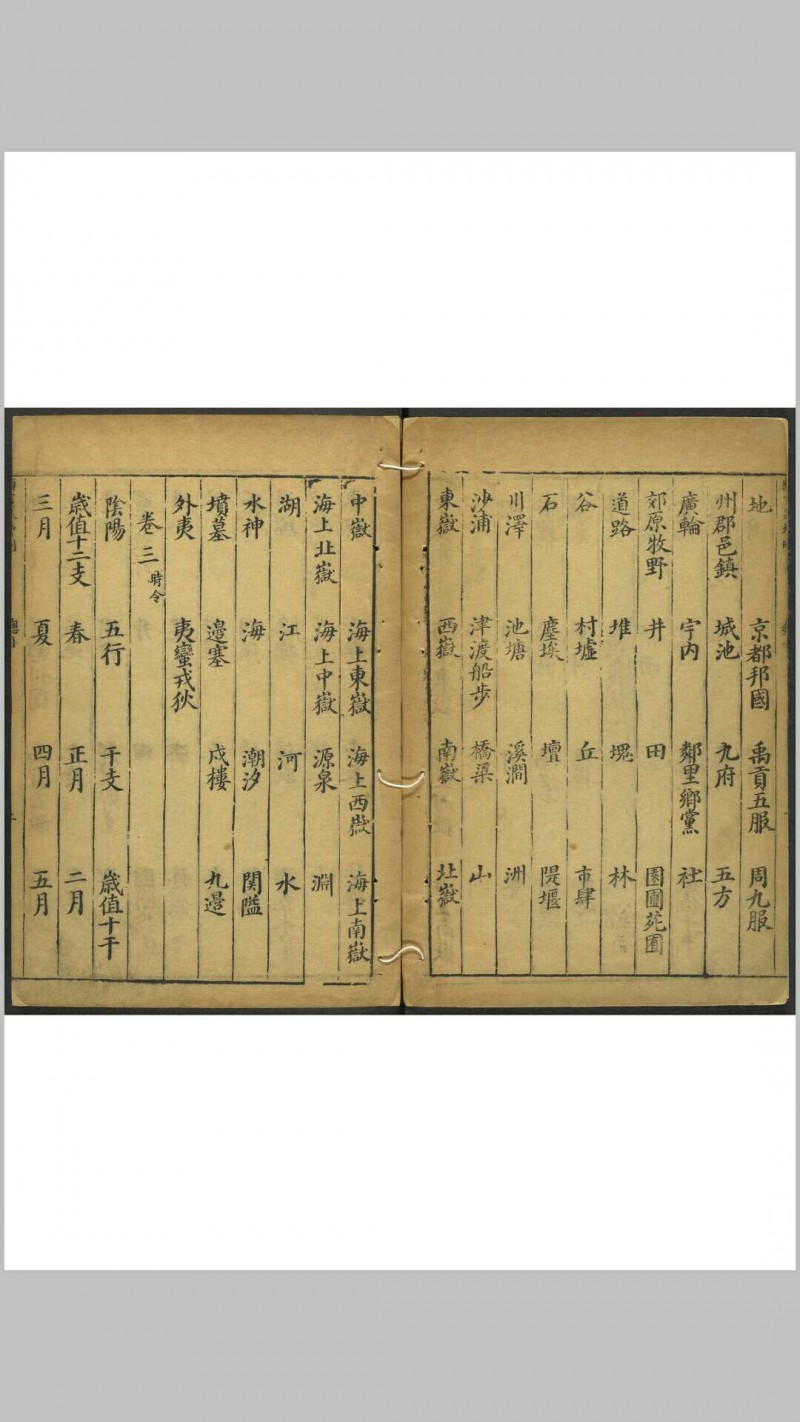 地 京都邦國 禹貢五服 周九服
州郡邑鎮 城池 九府 五方
廣輪 宇内 鄰里鄉黨 社
郊原牧野 井 田 園圃苑囿
道路 堆 塊 林
谷 村墟 丘 市肆
石 塵埃 壇 隄堰
川澤 池塘 溪澗 洲
沙浦 津渡船步 橋梁 山
東嶽 西嶽 南嶽 北嶽
中嶽 海上東嶽 海上西嶽 海上南嶽
海上北嶽 海上中嶽 源泉 淵
湖 江 河 水
水神 海 潮汐 関隘
墳墓 邉塞 戍樓 九邉
外夷 夷蠻戎狄
卷三 時令
陰陽 五行 干支 歲值十干
歲值十二支 春 正月 二月
三月 夏 四月 五月